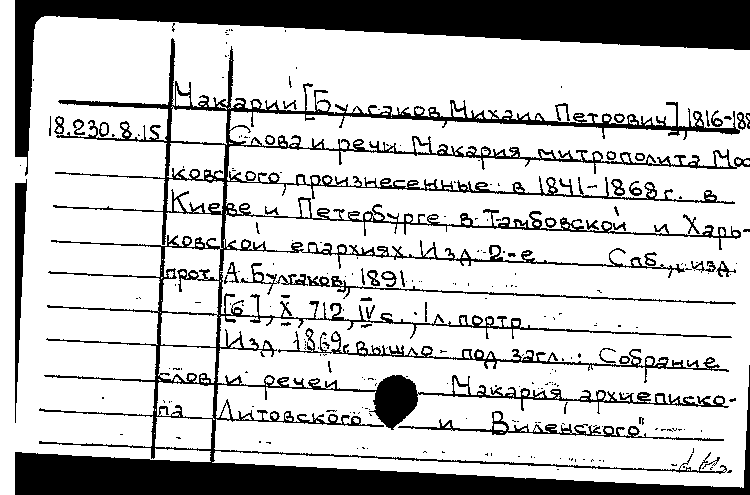 Макарий [Булгаков, Михаил Петрович], 1816-188
18.230.8.15 Слова и речи Макария, митрополита Мос
ковского, произнесенные в 1841-1868 г. в
Киеве и Петербурге, в Тамбовской и Харь-
ковской епархиях. Изд. 2-е Спб., изд.
прот. А. Булгаков, 1891.
[6], X, 712, IV с., 1 л. портр.
Изд. 1869г. вышло под загл.: "Собрание
слов и речей Макария, архиеписко-
па Литовского и Виленского".